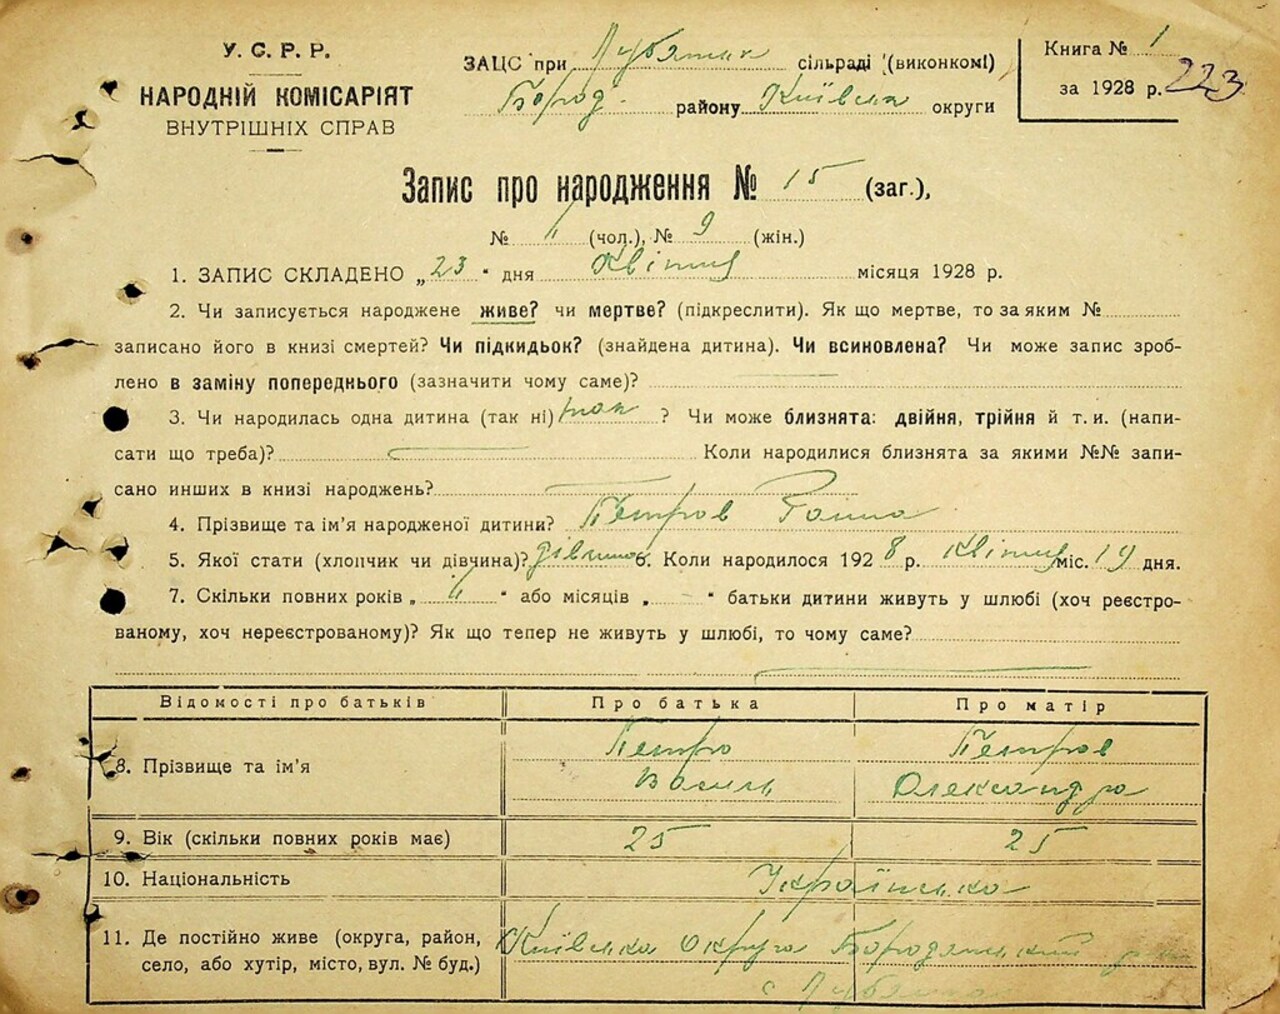 У. С. Р. Р.
НАРОДНІЙ КОМІСАРІЯТ
ВНУТРІШНІХ СПРАВ
ЗАЦС при Лубянськ сільраді (виконкомі)
Бород. району Київськ округи
Книга № 1
за 1928 р. 223
Запис про народження № 15 (заг.),
№ " (чол.), № 9 (жін.)
1. ЗАПИС СКЛАДЕНО „23" дня Квітня місяця 1928 р.
2. Чи записується народжене живе? чи мертве? (підкреслити). Як що мертве, то за яким №
записано його в книзі смертей? Чи підкидьок? (знайдена дитина). Чи всиновлена? Чи може запис зроб-
лено в заміну попереднього (зазначити чому саме)?
3. Чи народилась одна дитина (так ні) так ? Чи може близнята: двійня, трійня й т. и. (напи-
сати що треба)? Коли народилися близнята за якими №№ запи-
сано инших в книзі народжень?
4. Прізвище та ім'я народженої дитини? Петров
5. Якої стати (хлопчик чи дівчина)? дівчина 6. Коли народилося 1928 р. квітня міс. 19 дня.
7. Скільки повних років „ " або місяців „ - " батьки дитини живуть у шлюбі (хоч реєстро-
ваному, хоч нереєстрованому)? Як що тепер не живуть у шлюбі, то чому саме?
Відомості про батьків Про батька Про матір
8. Прізвище та ім'я Петро Василь Петров Олександра
9. Вік (скільки повних років має) 25 25
10. Національність Українська
11. Де постійно живе (округа, район, село, або хутір, місто, вул. № буд.) Київська округа Бородянський район
с Лубянка